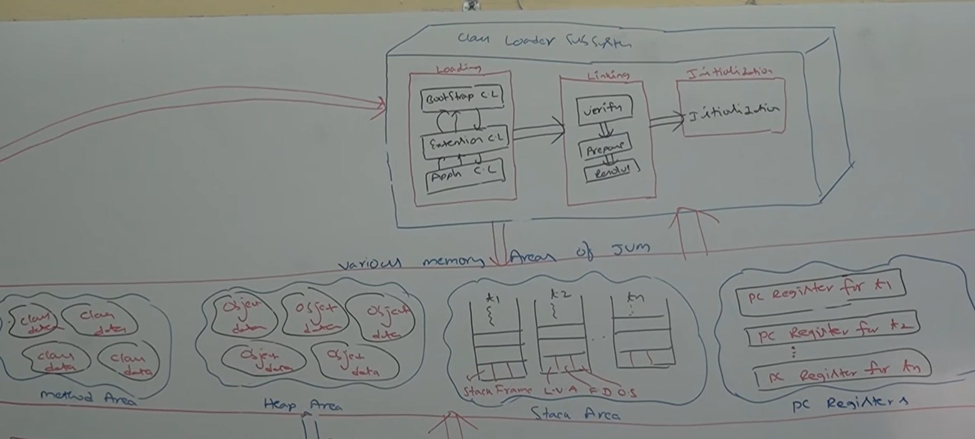 Class Loader Subsystem
Loading
Bootstrap C.L
Extention C.L
Appln C.L
Linking
Verify
Prepare
Resolve
Initialization
Initialization
various memory Areas of JVM
class data
class data
class data
class data
Method Area
Object data
Object data
Object data
Object data
Object data
Heap Area
t1
t2
tn
Stack Frame
L.V.A
F.D
O.S
Stack Area
PC Register for t1
PC Register for t2
PC Register for tn
PC Registers